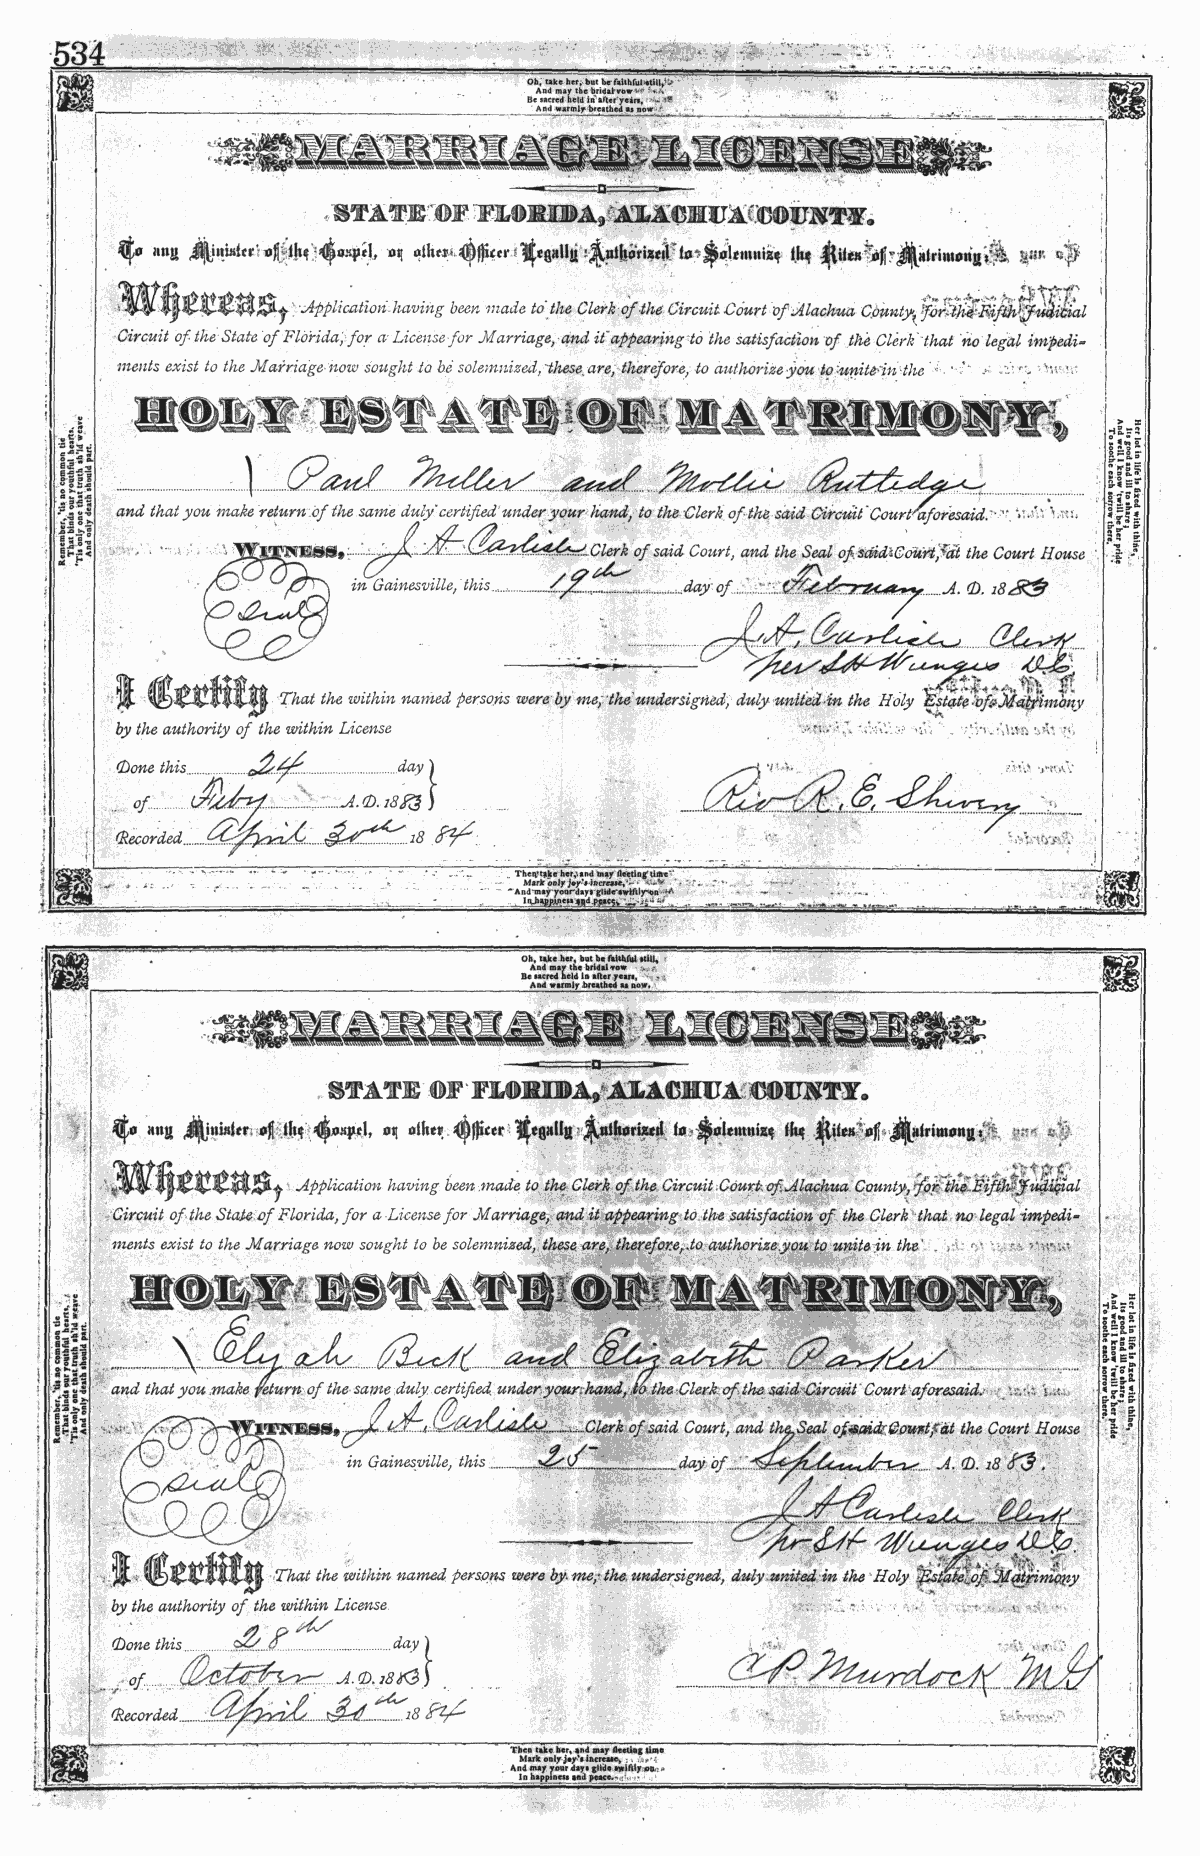 534
Oh, take her, but be faithful still,
And may the bridal vow
Be sacred held in after years,
And warmly breathed as now
MARRIAGE LICENSE
STATE OF FLORIDA, ALACHUA COUNTY.
To any Minister of the Gospel, or other Officer Legally Authorized to Solemnize the Rites of Matrimony:
Whereas, Application having been made to the Clerk of the Circuit Court of Alachua County, for the Fifth Judicial
Circuit of the State of Florida, for a License for Marriage, and it appearing to the satisfaction of the Clerk that no legal impedi-
ments exist to the Marriage now sought to be solemnized, these are, therefore, to authorize you to unite in the
HOLY ESTATE OF MATRIMONY,
Paul Miller and Mollie Rutledge
and that you make return of the same duly certified under your hand, to the Clerk of the said Circuit Court aforesaid.
WITNESS, J A Carlisle Clerk of said Court, and the Seal of said Court, at the Court House
Seal
in Gainesville, this 19th day of February A. D. 1883
J. A. Carlisle Clerk
per S H Wienges D.C.
I Certify That the within named persons were by me, the undersigned, duly united in the Holy Estate of Matrimony
by the authority of the within License
Done this 24 day
of Feby A. D. 1883
Rev R. E. Shivery
Recorded April 30th 1884
Remember, 'tis no common tie
That binds our youthful hearts,
'Tis only one that truth sh'ld weave
And only death should part.
Her lot in life is fixed with thine,
Its good and ill to share;
And well I know 'twill be her pride
To soothe each sorrow there.
Then take her, and may fleeting time
Mark only joy's increase,
And may your days glide swiftly on
In happiness and peace.
Oh, take her, but be faithful still,
And may the bridal vow
Be sacred held in after years,
And warmly breathed as now.
MARRIAGE LICENSE
STATE OF FLORIDA, ALACHUA COUNTY.
To any Minister of the Gospel, or other Officer Legally Authorized to Solemnize the Rites of Matrimony:
Whereas, Application having been made to the Clerk of the Circuit Court of Alachua County, for the Fifth Judicial
Circuit of the State of Florida, for a License for Marriage, and it appearing to the satisfaction of the Clerk that no legal impedi-
ments exist to the Marriage now sought to be solemnized, these are, therefore, to authorize you to unite in the
HOLY ESTATE OF MATRIMONY,
Elijah Beck and Elizabeth Parker
and that you make return of the same duly certified under your hand, to the Clerk of the said Circuit Court aforesaid.
WITNESS, J. A. Carlisle Clerk of said Court, and the Seal of said Court, at the Court House
Seal
in Gainesville, this 25 day of September A. D. 1883.
J A Carlisle Clerk
pr S H Wienges D.C.
I Certify That the within named persons were by me, the undersigned, duly united in the Holy Estate of Matrimony
by the authority of the within License
Done this 28th day
of October A. D. 1883
C P. Murdock M G
Recorded April 30th 1884
Remember, 'tis no common tie
That binds our youthful hearts,
'Tis only one that truth sh'ld weave
And only death should part.
Her lot in life is fixed with thine,
Its good and ill to share;
And well I know 'twill be her pride
To soothe each sorrow there.
Then take her, and may fleeting time
Mark only joy's increase,
And may your days glide swiftly on
In happiness and peace.